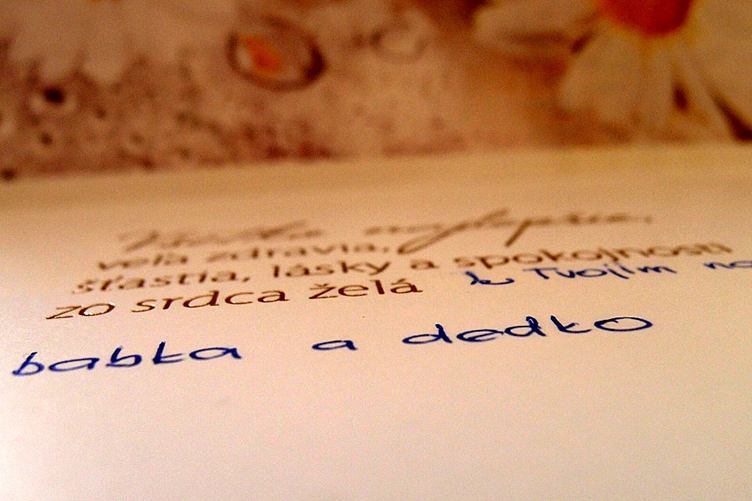 Všetko najlepšie,
veľa zdravia,
šťastia, lásky a spokojnosti
zo srdca želá k Tvojim
babka a dedko